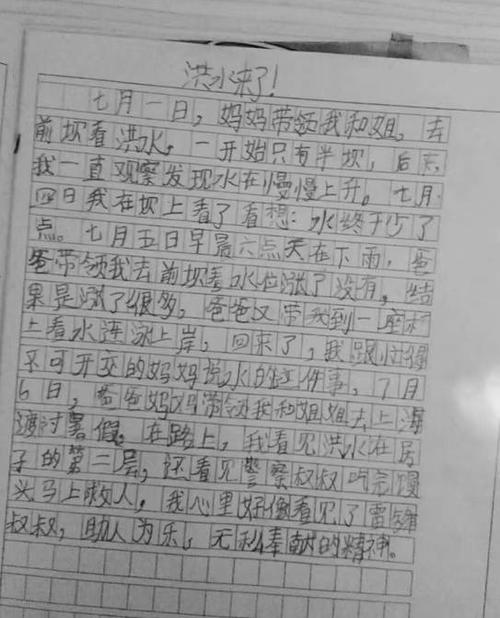 洪水来了!
七月一日，妈妈带领我和姐，去
前坝看洪水，一开始只有半坝，后来
我一直观察发现水在慢慢上升。七月
四日我在坝上看了看想：水终于少了
点。七月五日早晨六点天在下雨，爸
爸带领我去前坝看水位涨了没有，结
果是涨了很多，爸爸又带我到一座桥
上看水进泳上岸，回来了，我跟忙得
不可开交的妈妈说水的这件事，7月
6日，爸爸妈妈带领我和姐姐去上海
渡过暑假，在路上，我看见洪水在房
子的第二层，还看见警察叔叔吃完馒
头马上救人，我心里好像看见了雷锋
叔叔，助人为乐，无私奉献的精神。